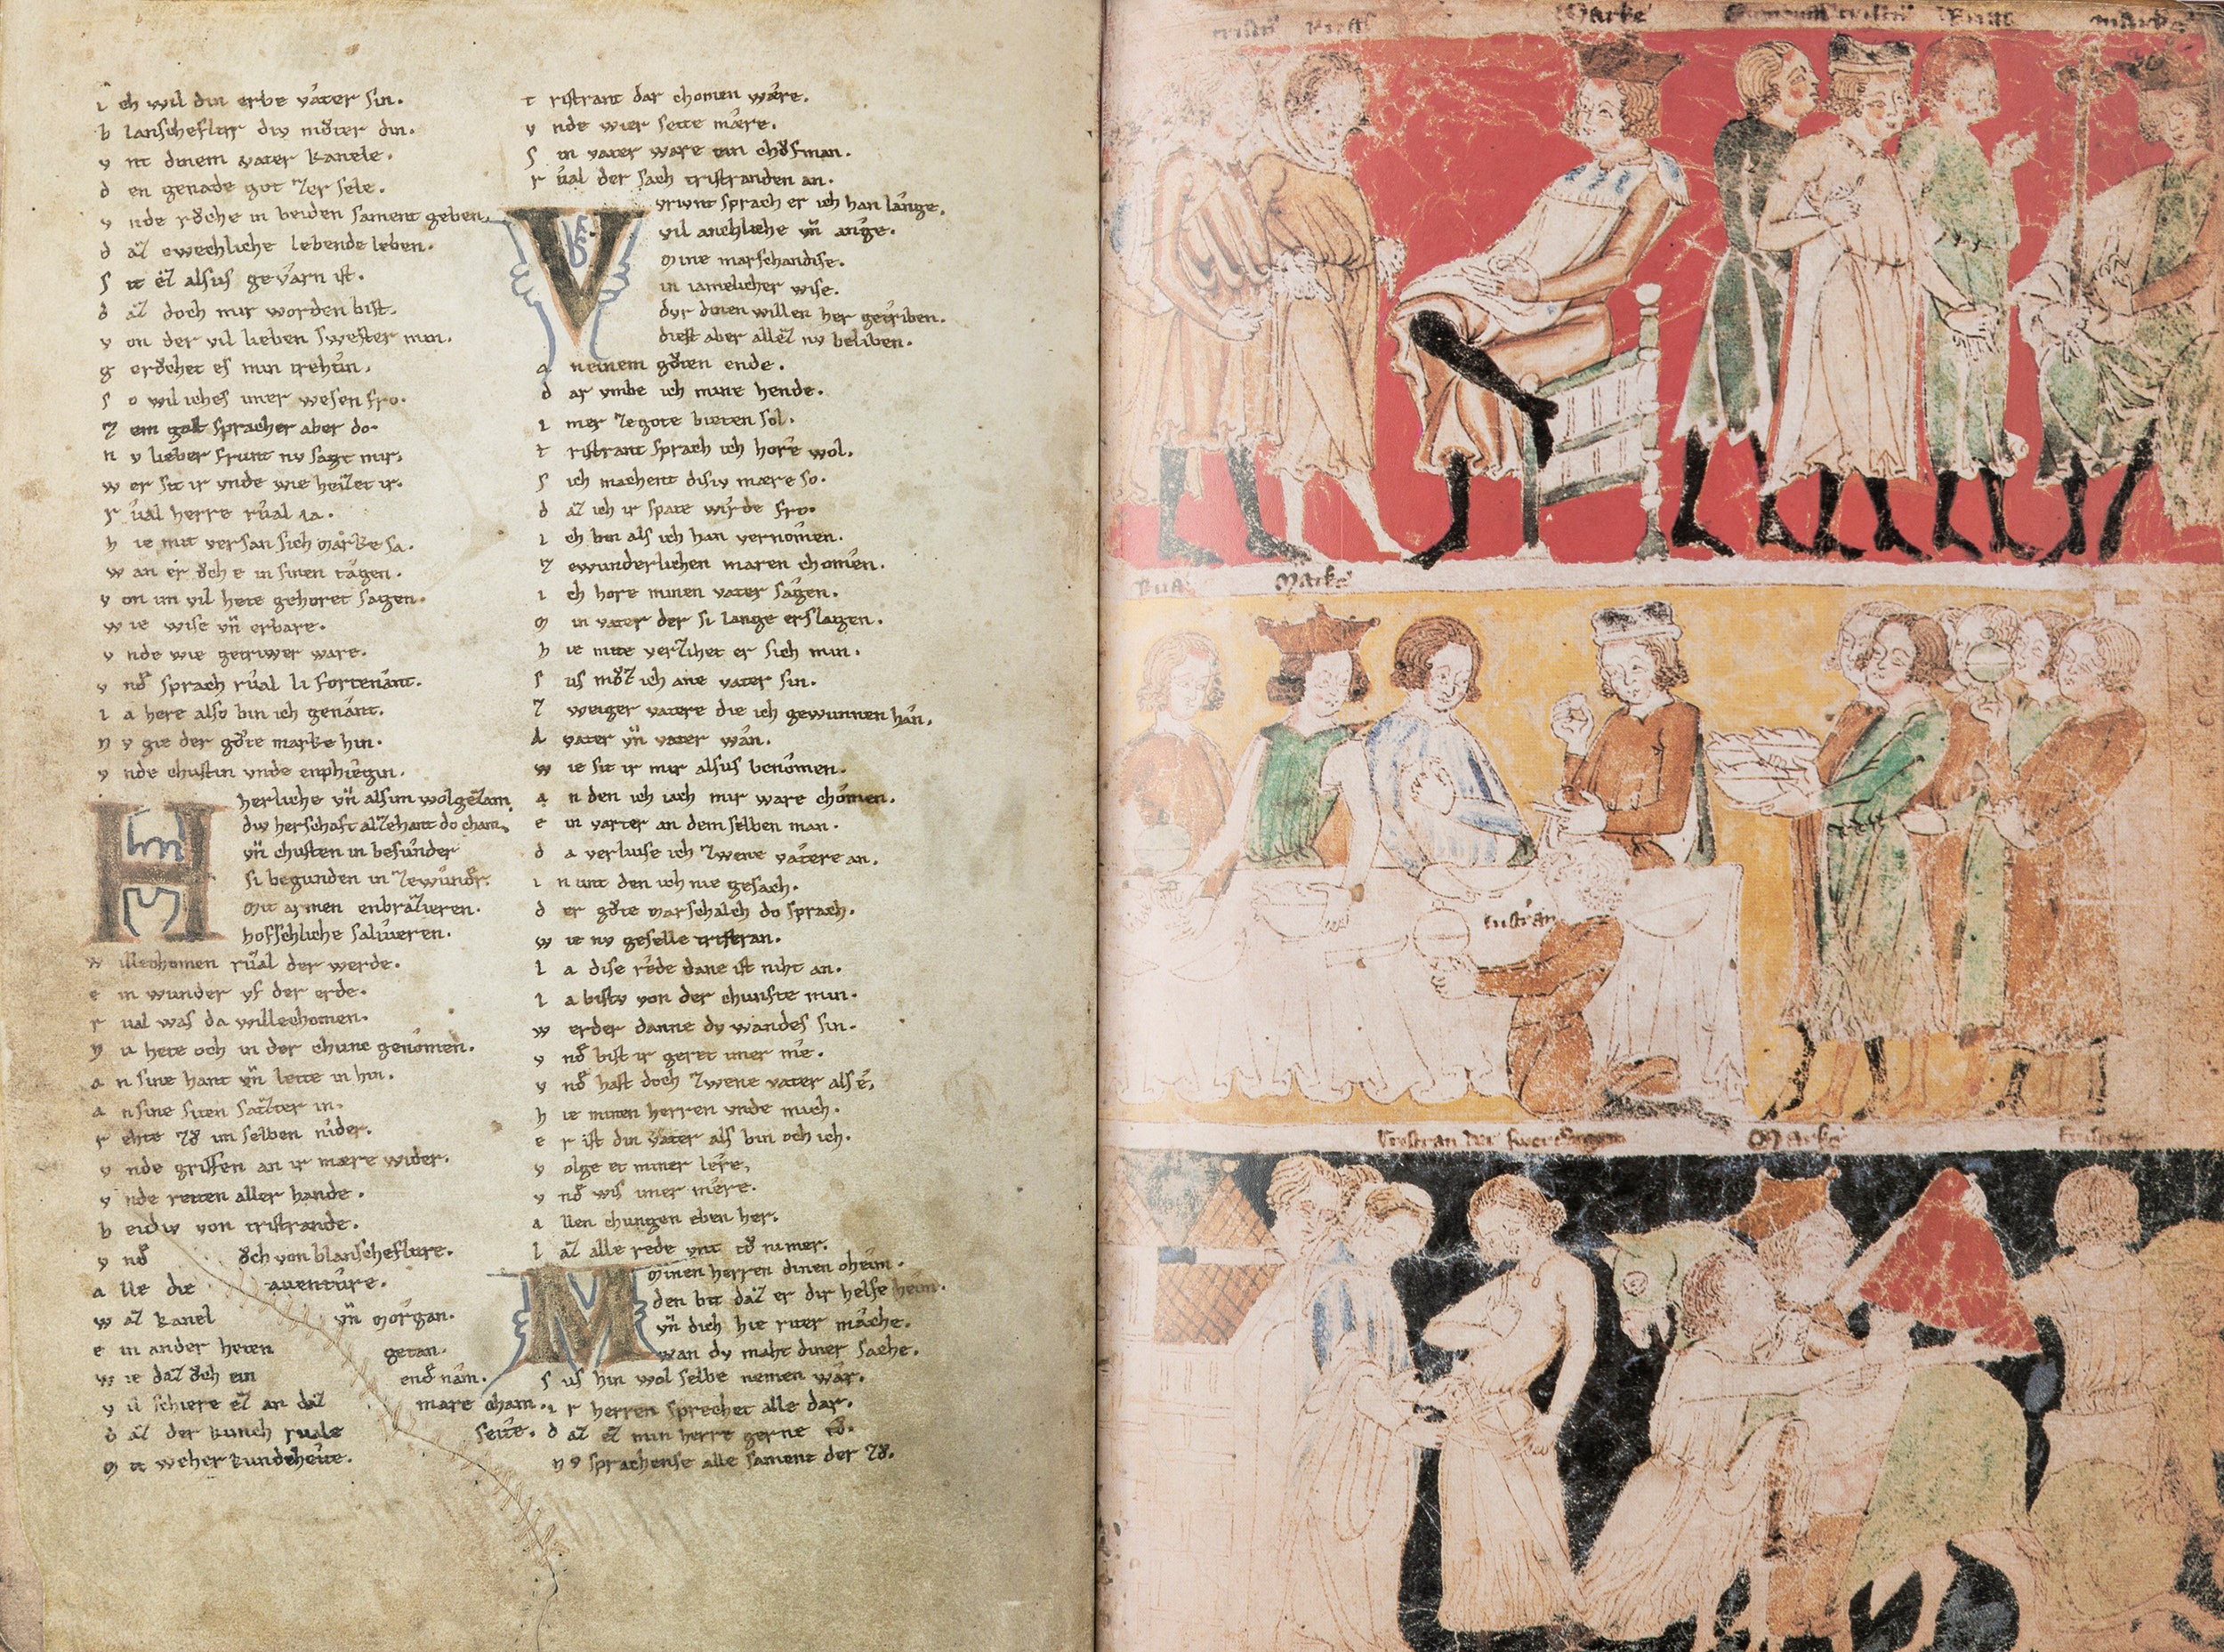 i ch wil din erbe vater sin.
b lanscheflur div můter din.
v nt dinem vater kanele.
d en genade got zer sele.
v nde růche in beiden sament geben.
d az ewechliche lebende leben.
s it ez alsus gevarn ist.
d az doch mir worden bist.
v on der vil lieben swester min.
g erůchet es min trehtin.
s o wil iches imer wesen fro.
z em gast sprach er aber do.
n v lieber frunt nv sagt mir.
w er sit ir vnde wie heizet ir.
r ual herre rual ia.
h ie mit versan sich marke sa.
w an er ŏch e in sinen tagen.
v on im vil hete gehoret sagen.
w ie wise vñ erbare.
v nde wie getriwer ware.
v nd sprach rual li fortenant.
i a here also bin ich genant.
n v gie der gůte marke hin.
v nde chustin vnde enphiegin.
H herliche vñ als im wol gezam.
div herschaft alzehant do cham.
vñ chusten in besunder
si begunden in zewundr.
mit armen enbrazieren.
hofschliche salvieren.
w illechomen rual der werde.
e in wunder vf der erde.
r ual was da willechomen.
n u hete och in der chunc genomen.
a n sine hant vñ leite in hin.
a n sine siten sazter in.
r ehte zů im selben nider.
v nde griffen an ir mære wider.
v nde retten aller hande.
b eidiv von tristrande.
v nd ŏch von blanscheflure.
a lle die auenture.
w az kanel vñ morgan.
e in ander heten getan.
w ie daz ŏch ein end nam.
v il schiere ez an daz mare cham.
d az der kunch ruale seite.
m it welher kundeheite.
t ristrant dar chomen wære.
v nde wier seite mære.
s in vater ware ein chŏfman.
r ual der sach tristranden an.
V vrivnt sprach er ich han lange.
vil anchliche vñ ange.
mine marschandise.
in iamelicher wise.
dvr dinen willen her getriben.
diest aber allez nv beliben.
a n einem gůten ende.
d ar vmbe ich mine hende.
i mer ze gote bieten sol.
t ristrant sprach ich hore wol.
s ich machent disiv mære so.
d az ich ir spate wirde fro.
i ch bin als ich han vernomen.
z ewunderlichen maren chomen.
i ch hore minen vater sagen.
m in vater der si lange erslagen.
h ie mite verzihet er sich min.
s us můz ich ane vater sin.
z weiger vatere die ich gewunnen han.
a vater vñ vater wan.
w ie sit ir mir alsus benomen.
a n den ich iach mir ware chomen.
e in varter an dem selben man.
d a verliuse ich zwene vatere an.
i n unt den ich nie gesach.
d er gůte marschalch do sprach.
w ie nv geselle tristran.
l a dise rede dane ist niht an.
i a bistv von der chunfte min.
w erder danne dv wandes sin.
v nd bist ir geret imer me.
v nd hast doch zwene vater als e.
h ie minen herren vnde mich.
e r ist din vater als bin och ich.
v olge et miner lere,
v nd wis imer mere.
a llen chungen eben her.
l az alle rede vnt tů nimer.
M minen herren dinen oheim.
den bit daz er dir helfe heim.
vñ dich hie riter mache.
wan dv maht diner sache.
s us hin wol selbe nemen war.
i r herren sprechet alle dar.
d az ez min herre gerne tů.
n v sprachense alle sament der zů.
Marke
Marke
tristran
Marke